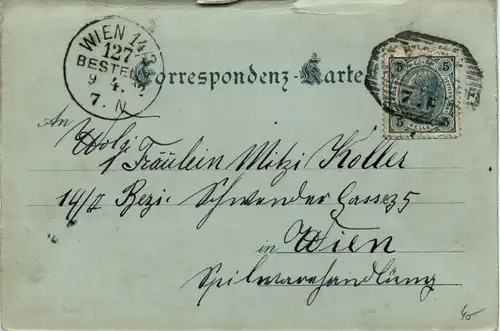 WIEN 14/2
127
BESTELLT
9. 4.
7. N
Correspondenz-Karte
5 5
5 5
An Wolg.
1 Fräulein Mitzi Koller
14/II Bezi. Schwender Gasse 5
in Wien
Spilwarenhandlüng